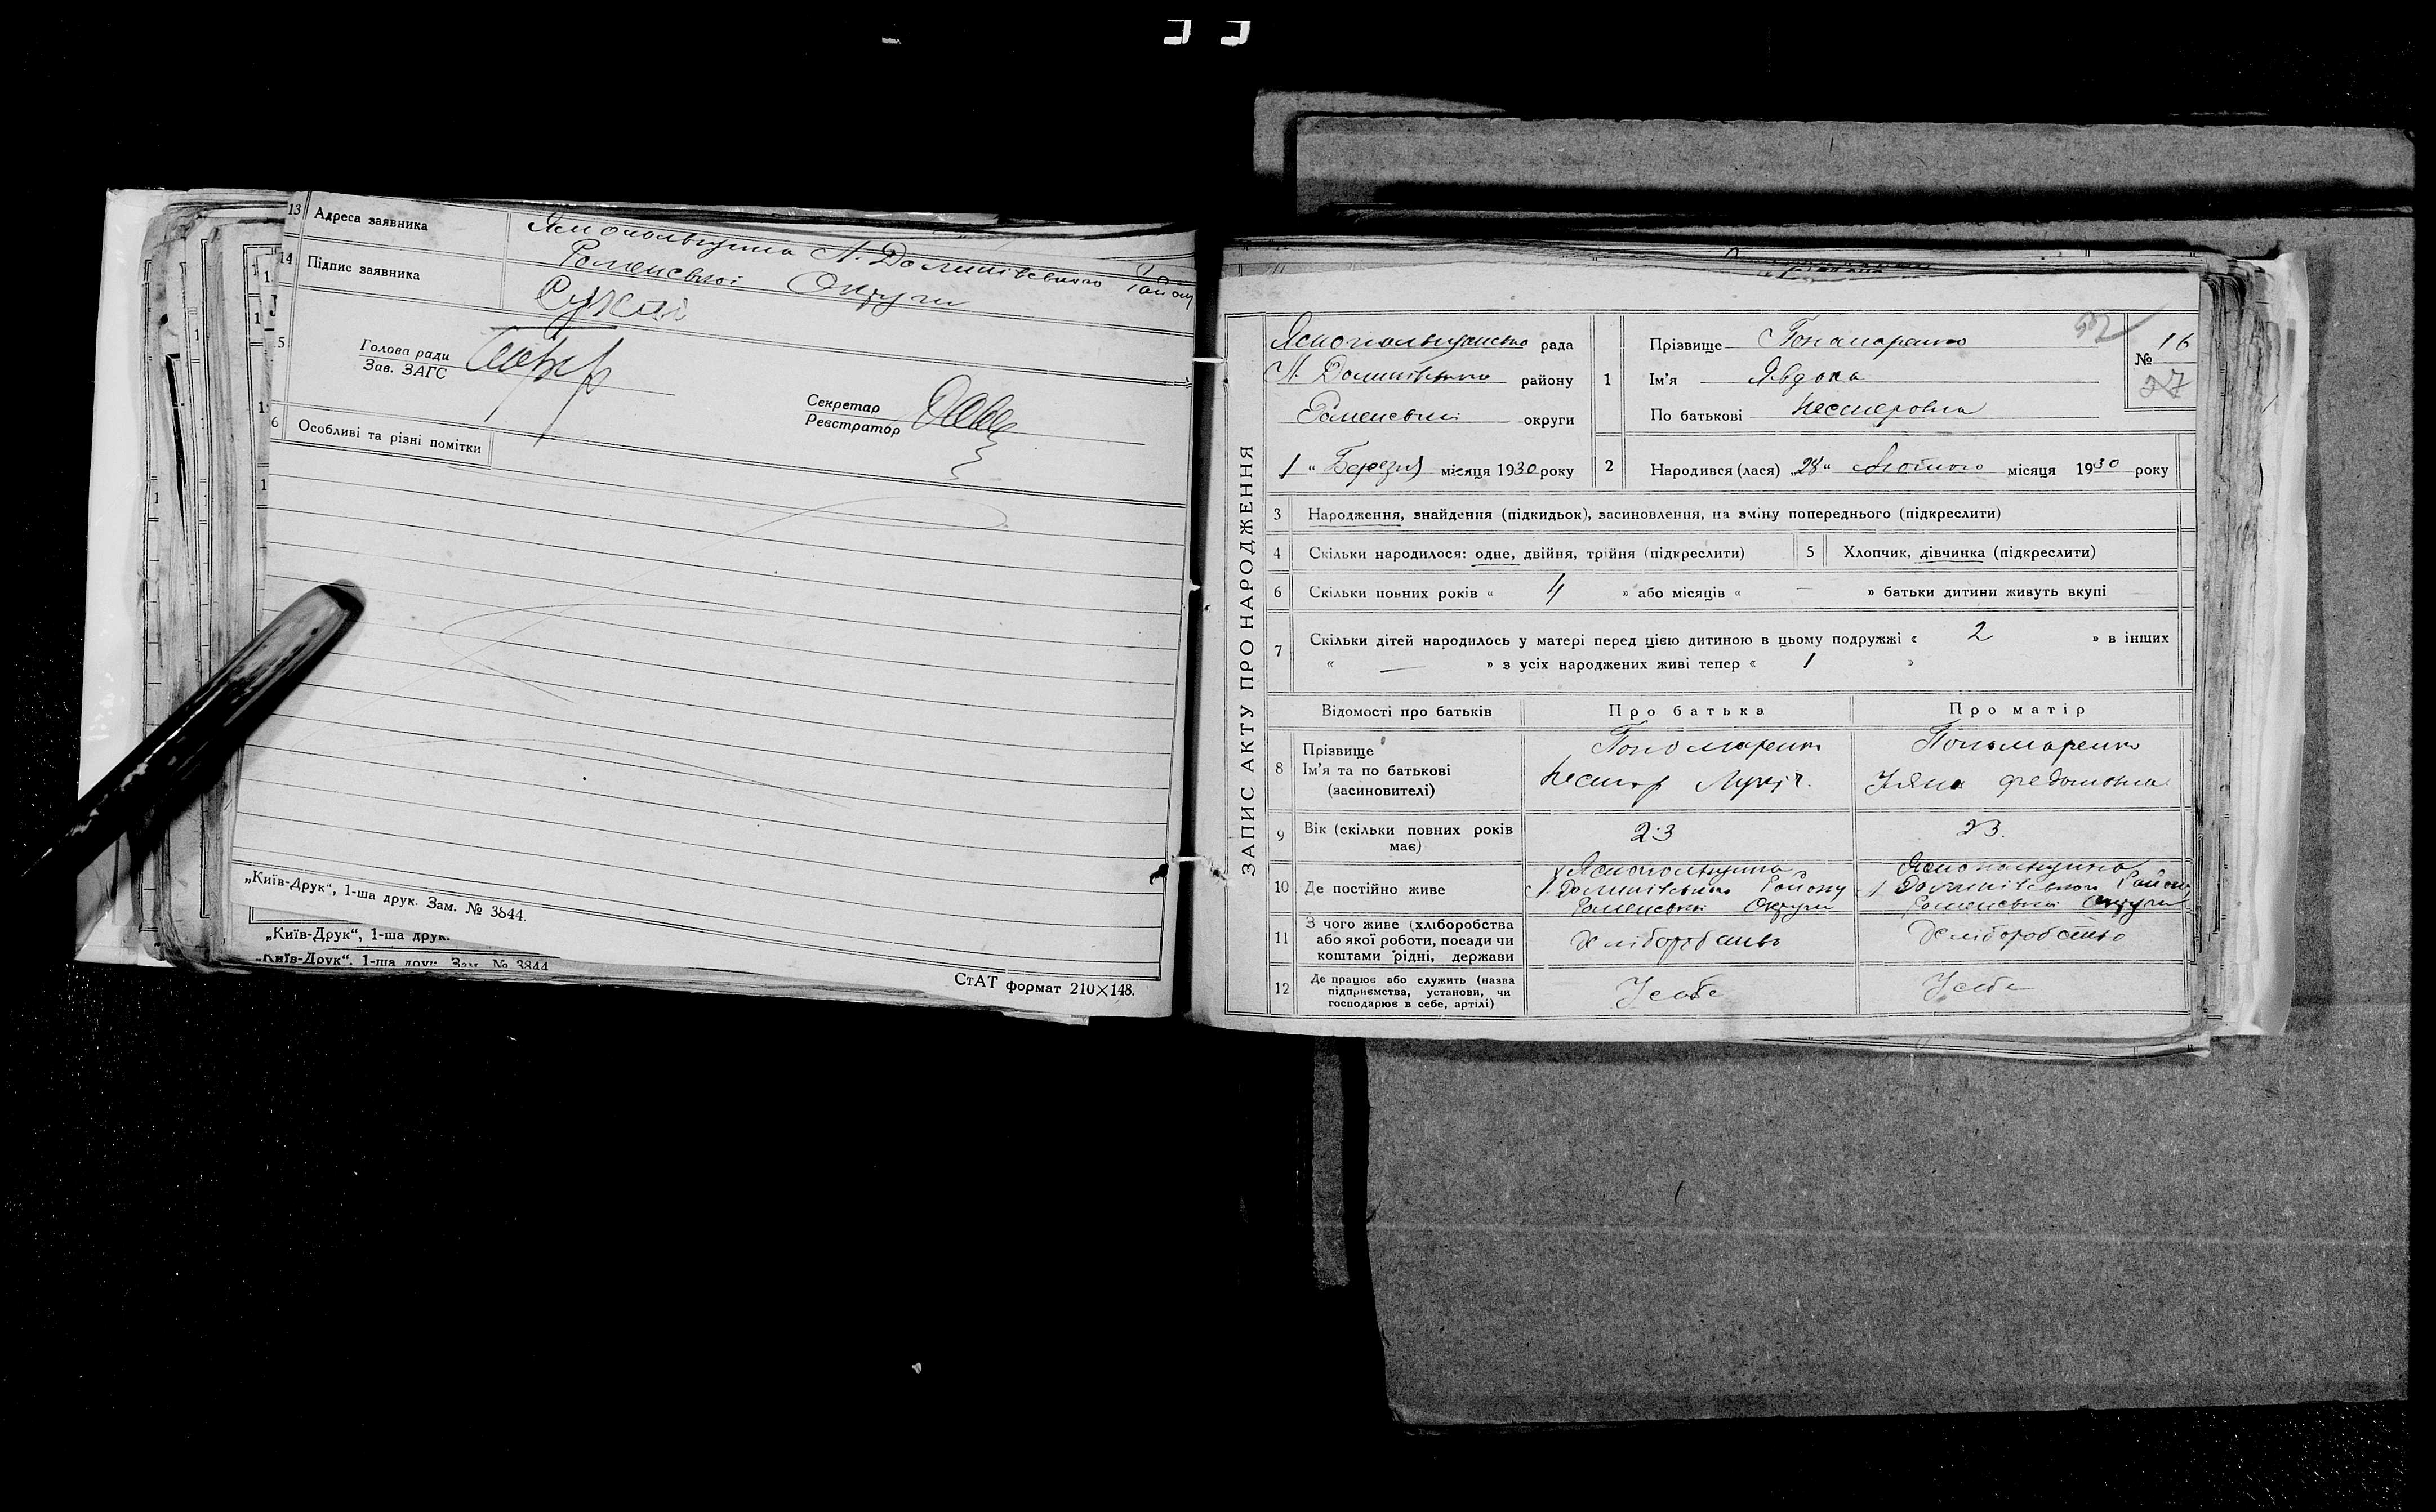 13 Адреса заявника
Яснопольщина Л. Долинівського Району
Роменської Округи
14 Підпис заявника
Голова ради
Зав. ЗАГС
Секретар
Реєстратор
6 Особливі та різні помітки
„Київ-Друк“, 1-ша друк. Зам. № 3844.
„Київ-Друк“, 1-ша друк.
„Київ-Друк“. 1-ша друк. Зам. № 3844
СтАТ формат 210×148.
ЗАПИС АКТУ ПРО НАРОДЖЕННЯ
рада
Л. Долинівського району
Роменської округи
1 „ Березня місяця 1930 року
1 Прізвище Понамаренко
Ім'я Явдоха
По батькові Несторовна
№ 16
27
2 Народився (лася) „28“ Лютого місяця 1930 року
3 Народження, знайдення (підкидьок), засиновлення, на зміну попереднього (підкреслити)
4 Скільки народилося: одне, двійня, трійня (підкреслити) 5 Хлопчик, дівчинка (підкреслити)
6 Скільки повних років « 4 » або місяців « — » батьки дитини живуть вкупі
7 Скільки дітей народилось у матері перед цією дитиною в цьому подружжі « 2 » в інших
« — » з усіх народжених живі тепер « 1 »
Відомості про батьків Про батька Про матір
8 Прізвище Пономаренко Пономаренко
Ім'я та по батькові Нестор Лукіч. Уляна Федоловна
(засиновителі)
9 Вік (скільки повних років має) 23 23.
10 Де постійно живе
Яснопольщина Яснопольщина
Л. Долинівського Району Л. Долинівського Району
Роменської Округи Роменської Округи
11 З чого живе (хліборобства
або якої роботи, посади чи Хліборобство Хліборобство
коштами рідні, держави
12 Де працює або служить (назва
підприємства, установи, чи У себе У себе
господарює в себе, артілі)